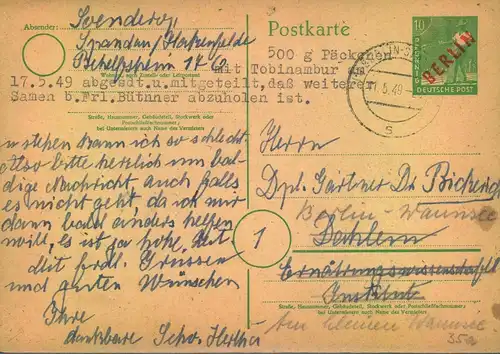 Absender:
Svenderop
Spandau/Hakenfelde
Behelfsheim 176
Wohnort, auch Zustell- oder Leitpostamt
Postkarte
500 g Päckchen
mit Tobinambur am
17.5.49 abgesdt.u.mitgeteilt,daß weiterer
Samen b.Frl.Büthner abzuholen ist.
Straße, Hausnummer, Gebäudeteil, Stockwerk oder
Postschließfachnummer;
bei Untermietern auch Name des Vermieters
10
PFENNIG
BERLIN
DEUTSCHE POST
5.49
s
u stehen kann ich so schlecht.
Also bitte herzlich um bal-
dige Nachricht auch falls
es nicht geht, da ich mir
dann bald anders helfen
will, es ist ja hohe Zeit
Mit frdl. Grüssen
und guten Wünschen
Ihre
dankbare Schw. Hertha
Herrn
Dpl. Gärtner Dr. Bickerich
Berlin-Wannsee
Dahlem
1
Ernährungswissenschaftl
Institut
Straße, Hausnummer, Gebäudeteil, Stockwerk oder Postschließfachnummer;
bei Untermietern auch Name des Vermieters
Am kleinen Wannsee
35a